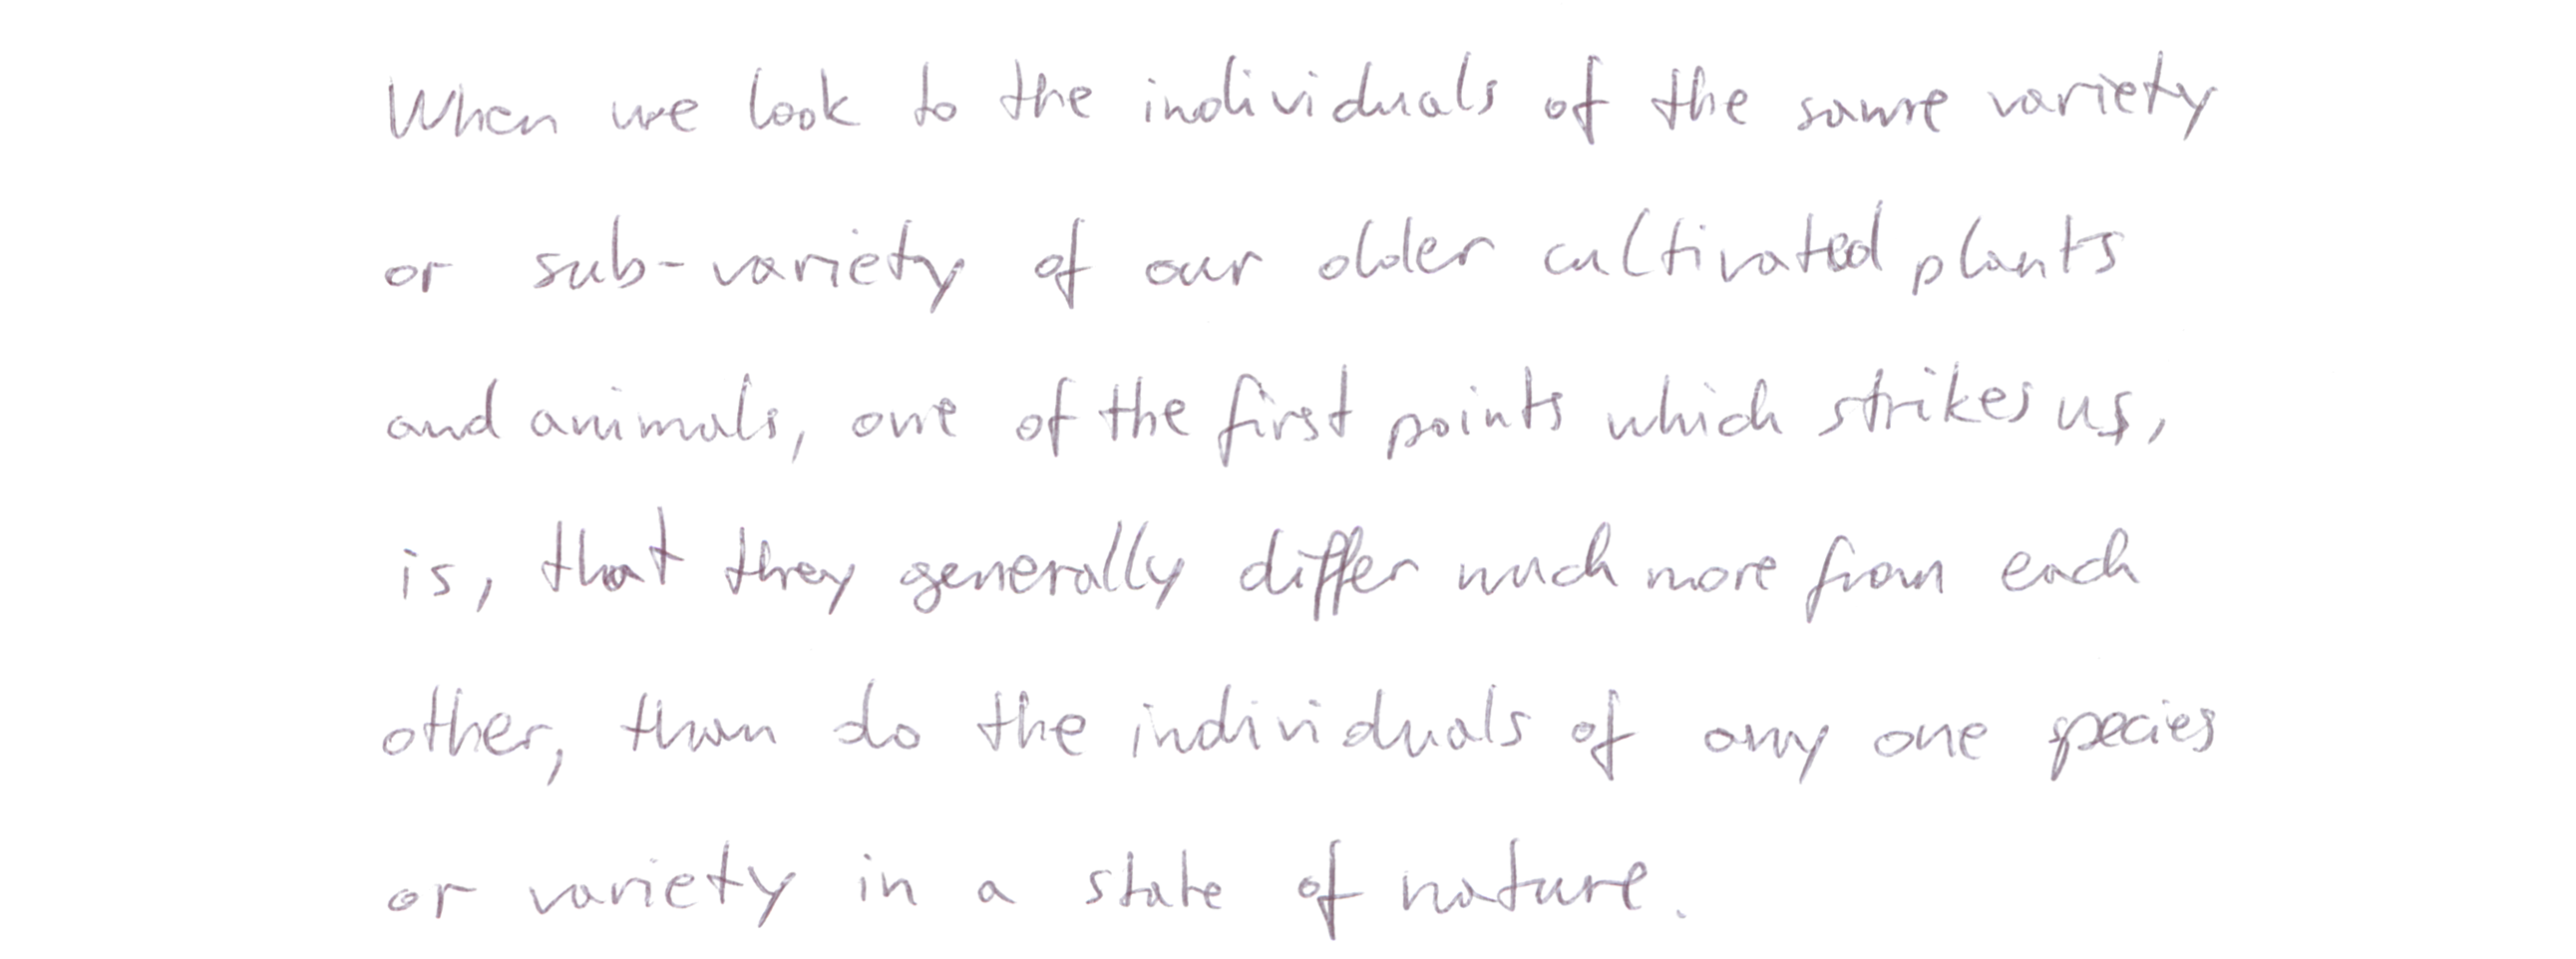 When we look to the individuals of the same variety
or sub-variety of our older cultivated plants
and animals, one of the first points which strikes us,
is, that they generally differ much more from each
other, than do the individuals of any one species
or variety in a state of nature.